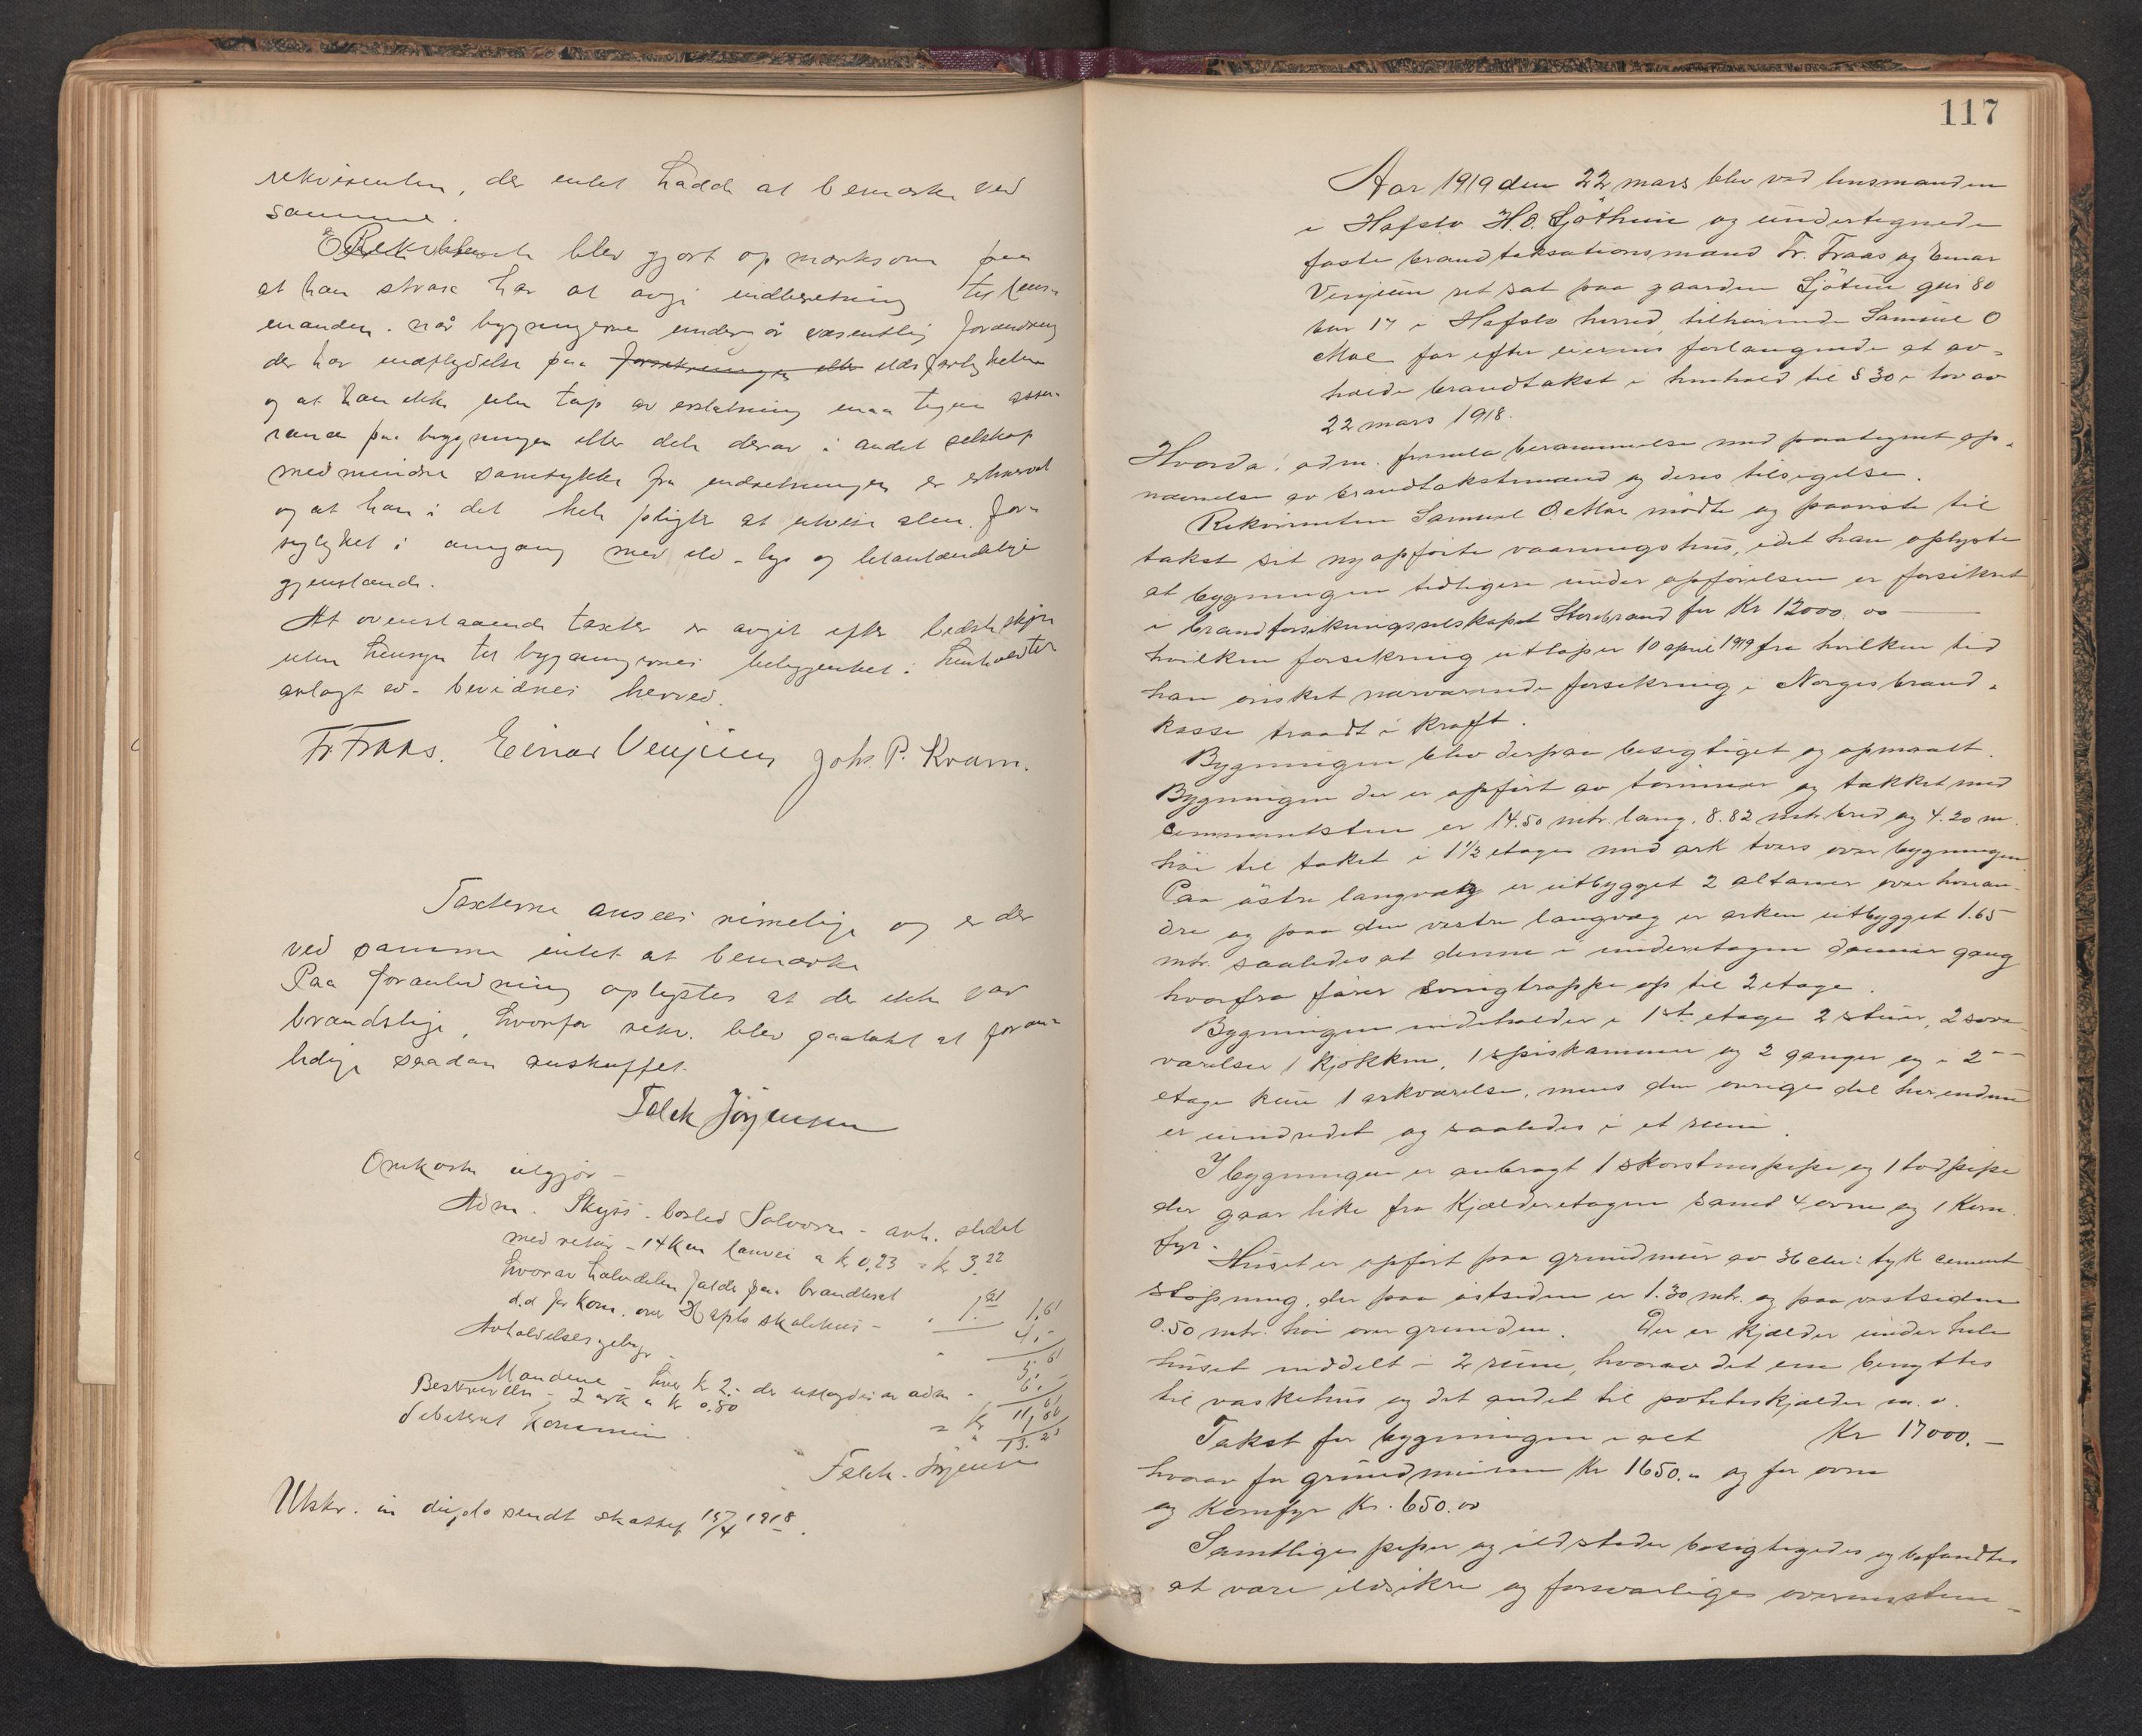 rekvirenten, der intet hadde at bemærke ved
samme.
Rekvirenten blev gjort opmerksom paa
at han straks har at avgi indberetning til lens-
manden når bygningerne undergår væsentlig forandring
der har indflydelse paa forsikringen eller ildsfarligheten
og at han ikke uten tap av erstatning maa tegne assu-
rance paa bygningen eller dele derav i andet selskap
medmindre samtykke fra indretningen er erhvervet
og at han i det hele pligter at utvise alm. for-
sigtighet i omgang med ild - lys og letantændelige
gjenstande.
At ovenstaaende taxter er avgit efter bedste skjøn
uten hensyn til bygningernes beliggenhet i henhold til
avlagt ed - bevidnes herved.
Fr. Fraas. Einar Venjum Johs. P. Kvam.
Taxterne ansees rimelige og er der
ved samme intet at bemærke
Paa foranledning oplystes at der ikke var
brandstige, hvorfor rekv. blev paalakt at foran-
ledige saadan anskaffet.
Falck Jørgensen
Omkostn utgjør -
Adm. Skyss. bosted Solvorn - avh. stedet
med retur - 14 km landvei a kr 0,23 = kr 3.22
hvorav halvdelen falder paa brandtaxt
d.d for kom. over Hafslo skolehus - " 1.61 1,61
Avholdelsesgebyr " 4.-
5.61
Mændene hver kr 2.- der utlagdes av adm - 6.-
Beskrivelse - 2 ark a kr 0.80 = kr 11,61
debiteret kommunen " 13.21
Falck-Jørgensen
Utskr. in duplo sendt skattef 15/4 1918.
117
Aar 1919 den 22 mars blev ved lensmanden
i Hafslo H. O. Sjøthun og undertegnede
faste brandtaksationsmænd Fr. Fraas og Einar
Venjum ret sat paa gaarden Sjøtun gnr 80
bnr 17 i Hafslo herred, tilhørende Samuel O
Moe for efter eierens forlangende at av-
holde brandtakst i henhold til § 30 i lov av
22 mars 1918.
Hvorda! adm. fremla berammelse med paategnet op-
nævnelse av brandtakstmænd og deres tilsigelse.
Rekvirenten Samuel O. Moe mødte og paaviste til
takst sit nyopførte vaaningshus, idet han oplyste
at bygningen tidligere under opførelsen er forsikret
i brandforsikringsselskapet Storebrand for Kr 12000.00
hvilken forsikring utløper 10 april 1919 fra hvilken tid
han ønsket nærværende forsikring i Norges brand-
kasse traadt i kraft.
Bygningen blev derpaa besigtiget og opmaalt.
Bygningen der er opført av tømmer og tækket med
sementsten er 14.50 mtr. lang, 8.82 mtr. bred og 4.20 m.
høi til taket i 1½ etage med ark tvers over bygningen
Paa østre langvæg er utbygget 2 altaner over hveran-
dre og paa den vestre langvæg er arken utbygget 1.65
mtr. saaledes at denne i underetagen danner gang
hvorfra fører svingtrappe op til 2 etage.
Bygningen indeholder i 1ste etage 2 stuer, 2 sove-
værelser 1 kjøkken, 1 spiskammer og 2 ganger og i 2den
etage kun 1 arkværelse, mens den øvrige del her endnu
er uindredet og saaledes i et rum.
I bygningen er anbragt 1 skorstenspipe og 1 lodpipe
der gaar like fra kjælderetagen samt 4 ovne og 1 kom-
fyr.
Huset er opført paa grundmur av 36 ctm: tyk cement
støpning, der paa østsiden er 1.30 mtr. og paa vestsiden
0.50 mtr. høi over grunden. Der er kjælder under hele
huset inddelt i 2 rum, hvorav det ene benyttes
til vaskehus og det andet til poteteskjælder m.v.
Takst for bygningen i alt Kr 17000.-
hvorav for grundmuren Kr 1650.00 og for ovne
og komfyr Kr. 650.00
Samtlige piper og ildsteder besigtigedes og befandtes
at være ildsikre og forsvarlige overensstem-